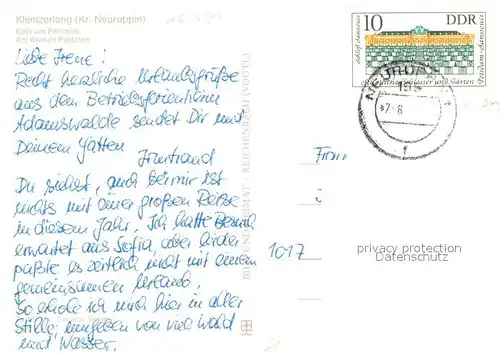 Kleinzerlang (Kr. Neuruppin)
Café am Pälitzsee
Am Kleinen Pälitzsee
Liebe Irene!
Recht herzliche Urlaubsgrüße
aus dem Betriebsferienheim
Adamswalde sendet Dir und
Deinem Gatten
Irmtraud
Du siehst, auch bei mir ist
nichts mit einer großen Reise
in diesem Jahr. Ich hatte Besuch
erwartet aus Sofia, aber leider
paßte es zeitlich nicht mit einem
gemeinsamen Urlaub.
So erhole ich mich hier in aller
Stille, umgeben von viel Wald
und Wasser.
BILD UND HEIMAT · REICHENBACH (VOGTL)
10 DDR
Schloß Sanssouci
Potsdam-Sanssouci
Staatliche Schlösser und Gärten
Frau
1017
privacy protection
Datenschutz